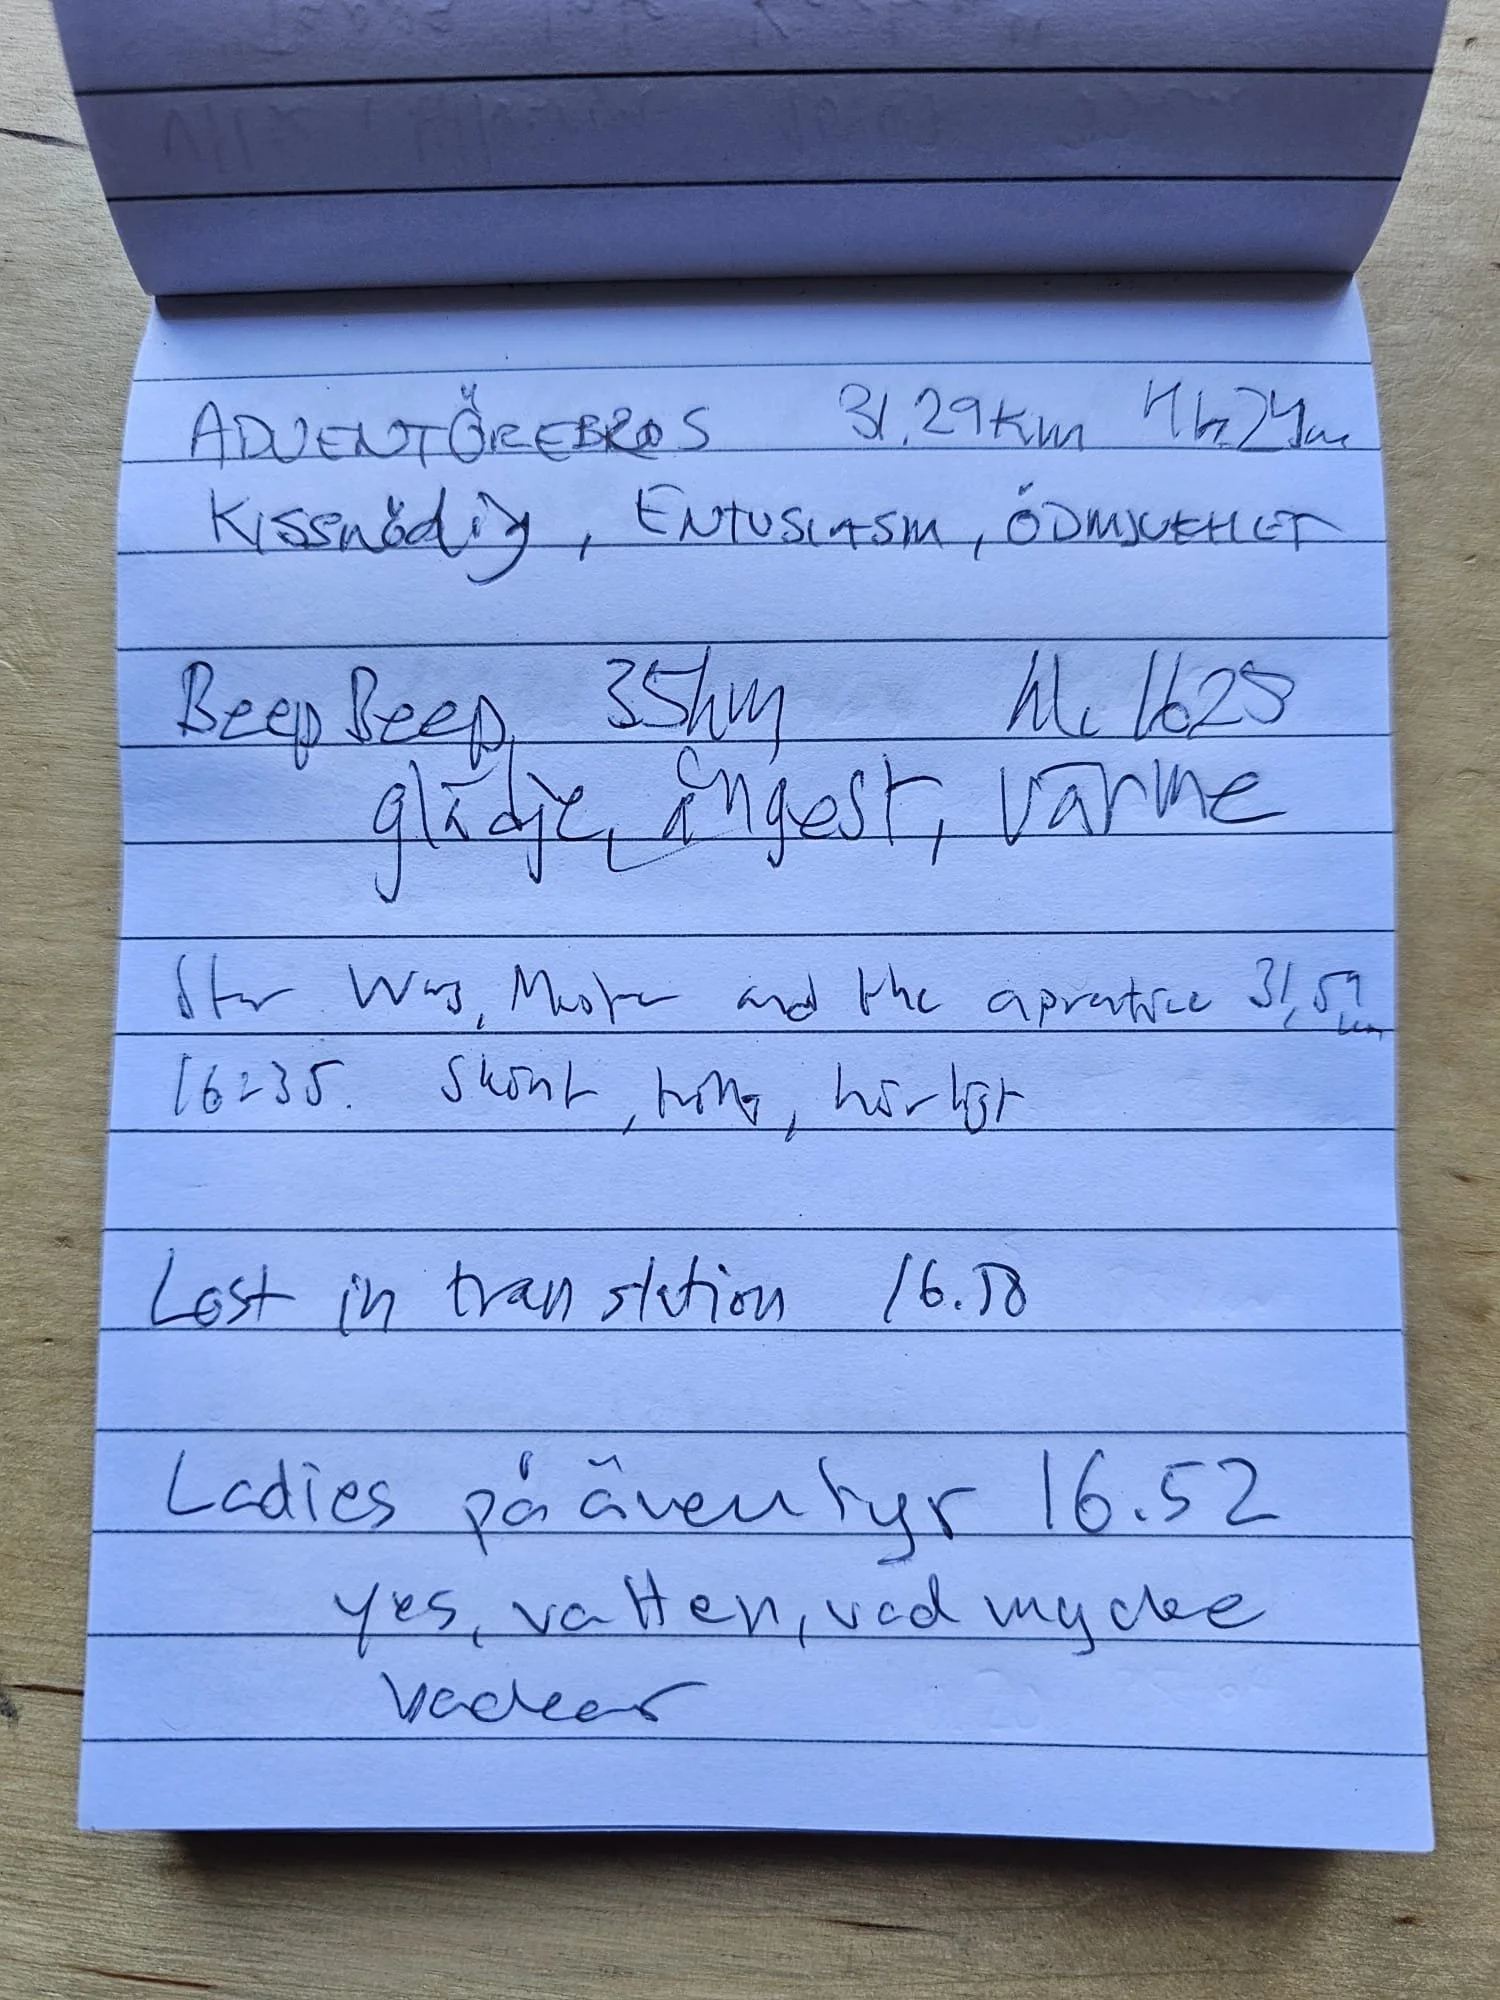 ADVENTÖREBROS 31.29km 4h 24m
Kissnödig, ENTUSIASM, ÖDMJUKHET
BeepBeep, 35km kl. 1625
glädje, ångest, värme
Star Wars, Master and the aprentice 31,59 km
16:35. Skönt, häftig, härligt
Lost in translation 16.58
Ladies på äventyr 16.52
yes, vatten, vad mycke
vacker